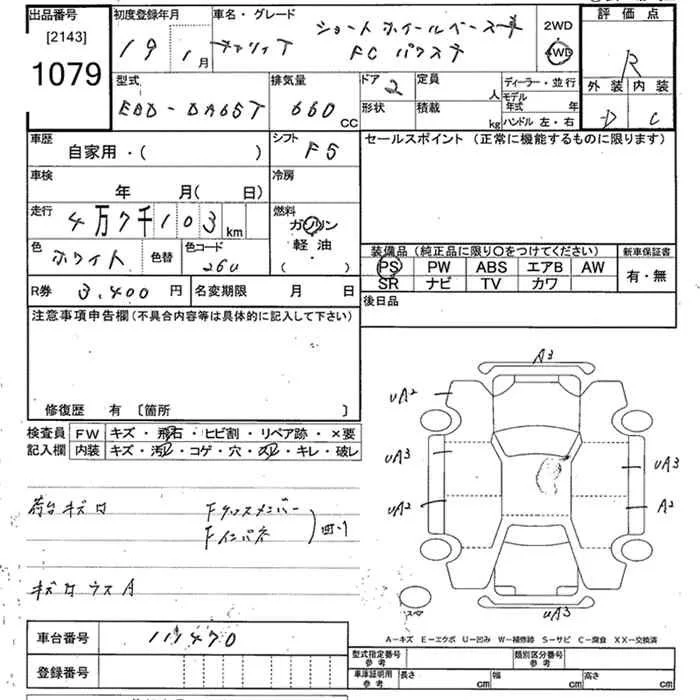 出品番号 初度登録年月 車名・グレード 評価点
[2143] ショートホイールベース車 2WD
1079 19 1月 キャリィT FC パワステ 4WD R
型式 排気量 ドア 2 定員 人 ディーラー・並行 外装 内装
EBD-DA65T 660 CC 形状 積載 kg モデル年式 年 ハンドル 左・右 D C
車歴 自家用・( ) シフト F5 セールスポイント (正常に機能するものに限ります)
車検 年 月( 日) 冷房
走行 4万7千103 km 燃料 ガソリン
軽油
色 ホワイト 色替 色コード 26U ( ・ ) 装備品 (純正品に限り〇をつけてください) 新車保証書
PS PW ABS エアB AW 有・無
R券 3,400 円 名変期限 月 日 SR ナビ TV カワ
後日品
注意事項申告欄(不具合内容等は具体的に記入して下さい)
修復歴 有 [箇所 ]
検査員 FW キズ・飛石・ヒビ割・リペア跡・×要
記入欄 内装 キズ・汚レ・コゲ・穴・スレ・キレ・破レ
A3
uA2
uA3 uA3
uA2 A2
荷台キズ凹 Fクロスメンバー
Fインパネ 凹り
キズ凹ウスA
スペ uA3
A-キズ E-エクボ U-凹み W-補修跡 S-サビ C-腐食 XX-交換済
車台番号 111470 型式指定番号 参考 類別区分番号 参考
登録番号 車庫証明用 参考 長さ cm 幅 cm 高さ cm